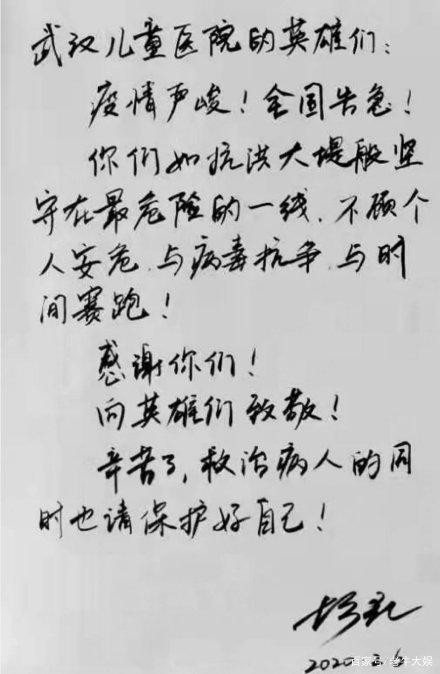 武汉儿童医院的英雄们：
疫情严峻！全国告急！
你们如抗洪大堤般坚
守在最危险的一线，不顾个
人安危，与病毒抗争，与时
间赛跑！
感谢你们！
向英雄们致敬！
辛苦了，救治病人的同
时也请保护好自己！
2020.2.6
百家号/老牛大娱